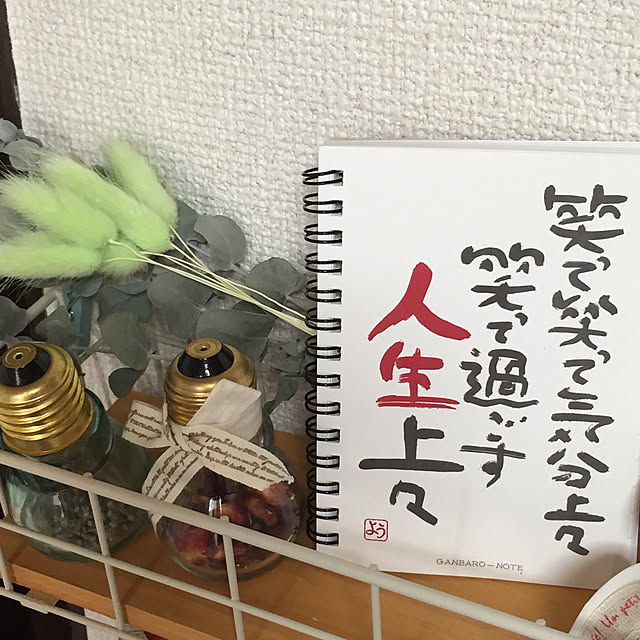 笑って笑って気分上々
笑って過ごす
人生上々
よう
GANBARO-NOTE